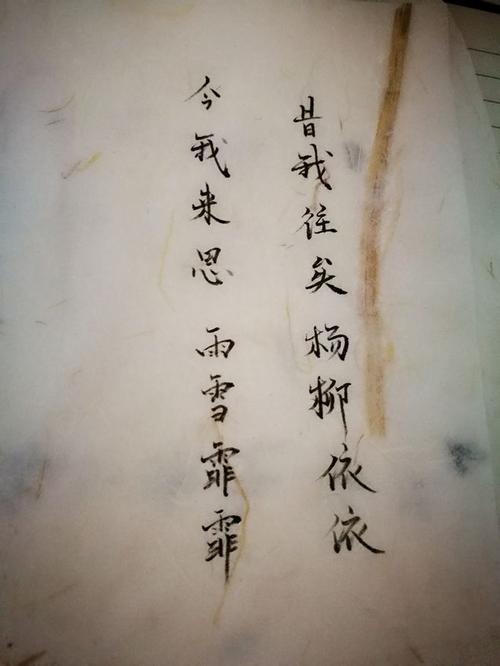 昔我往矣 杨柳依依
今我来思 雨雪霏霏